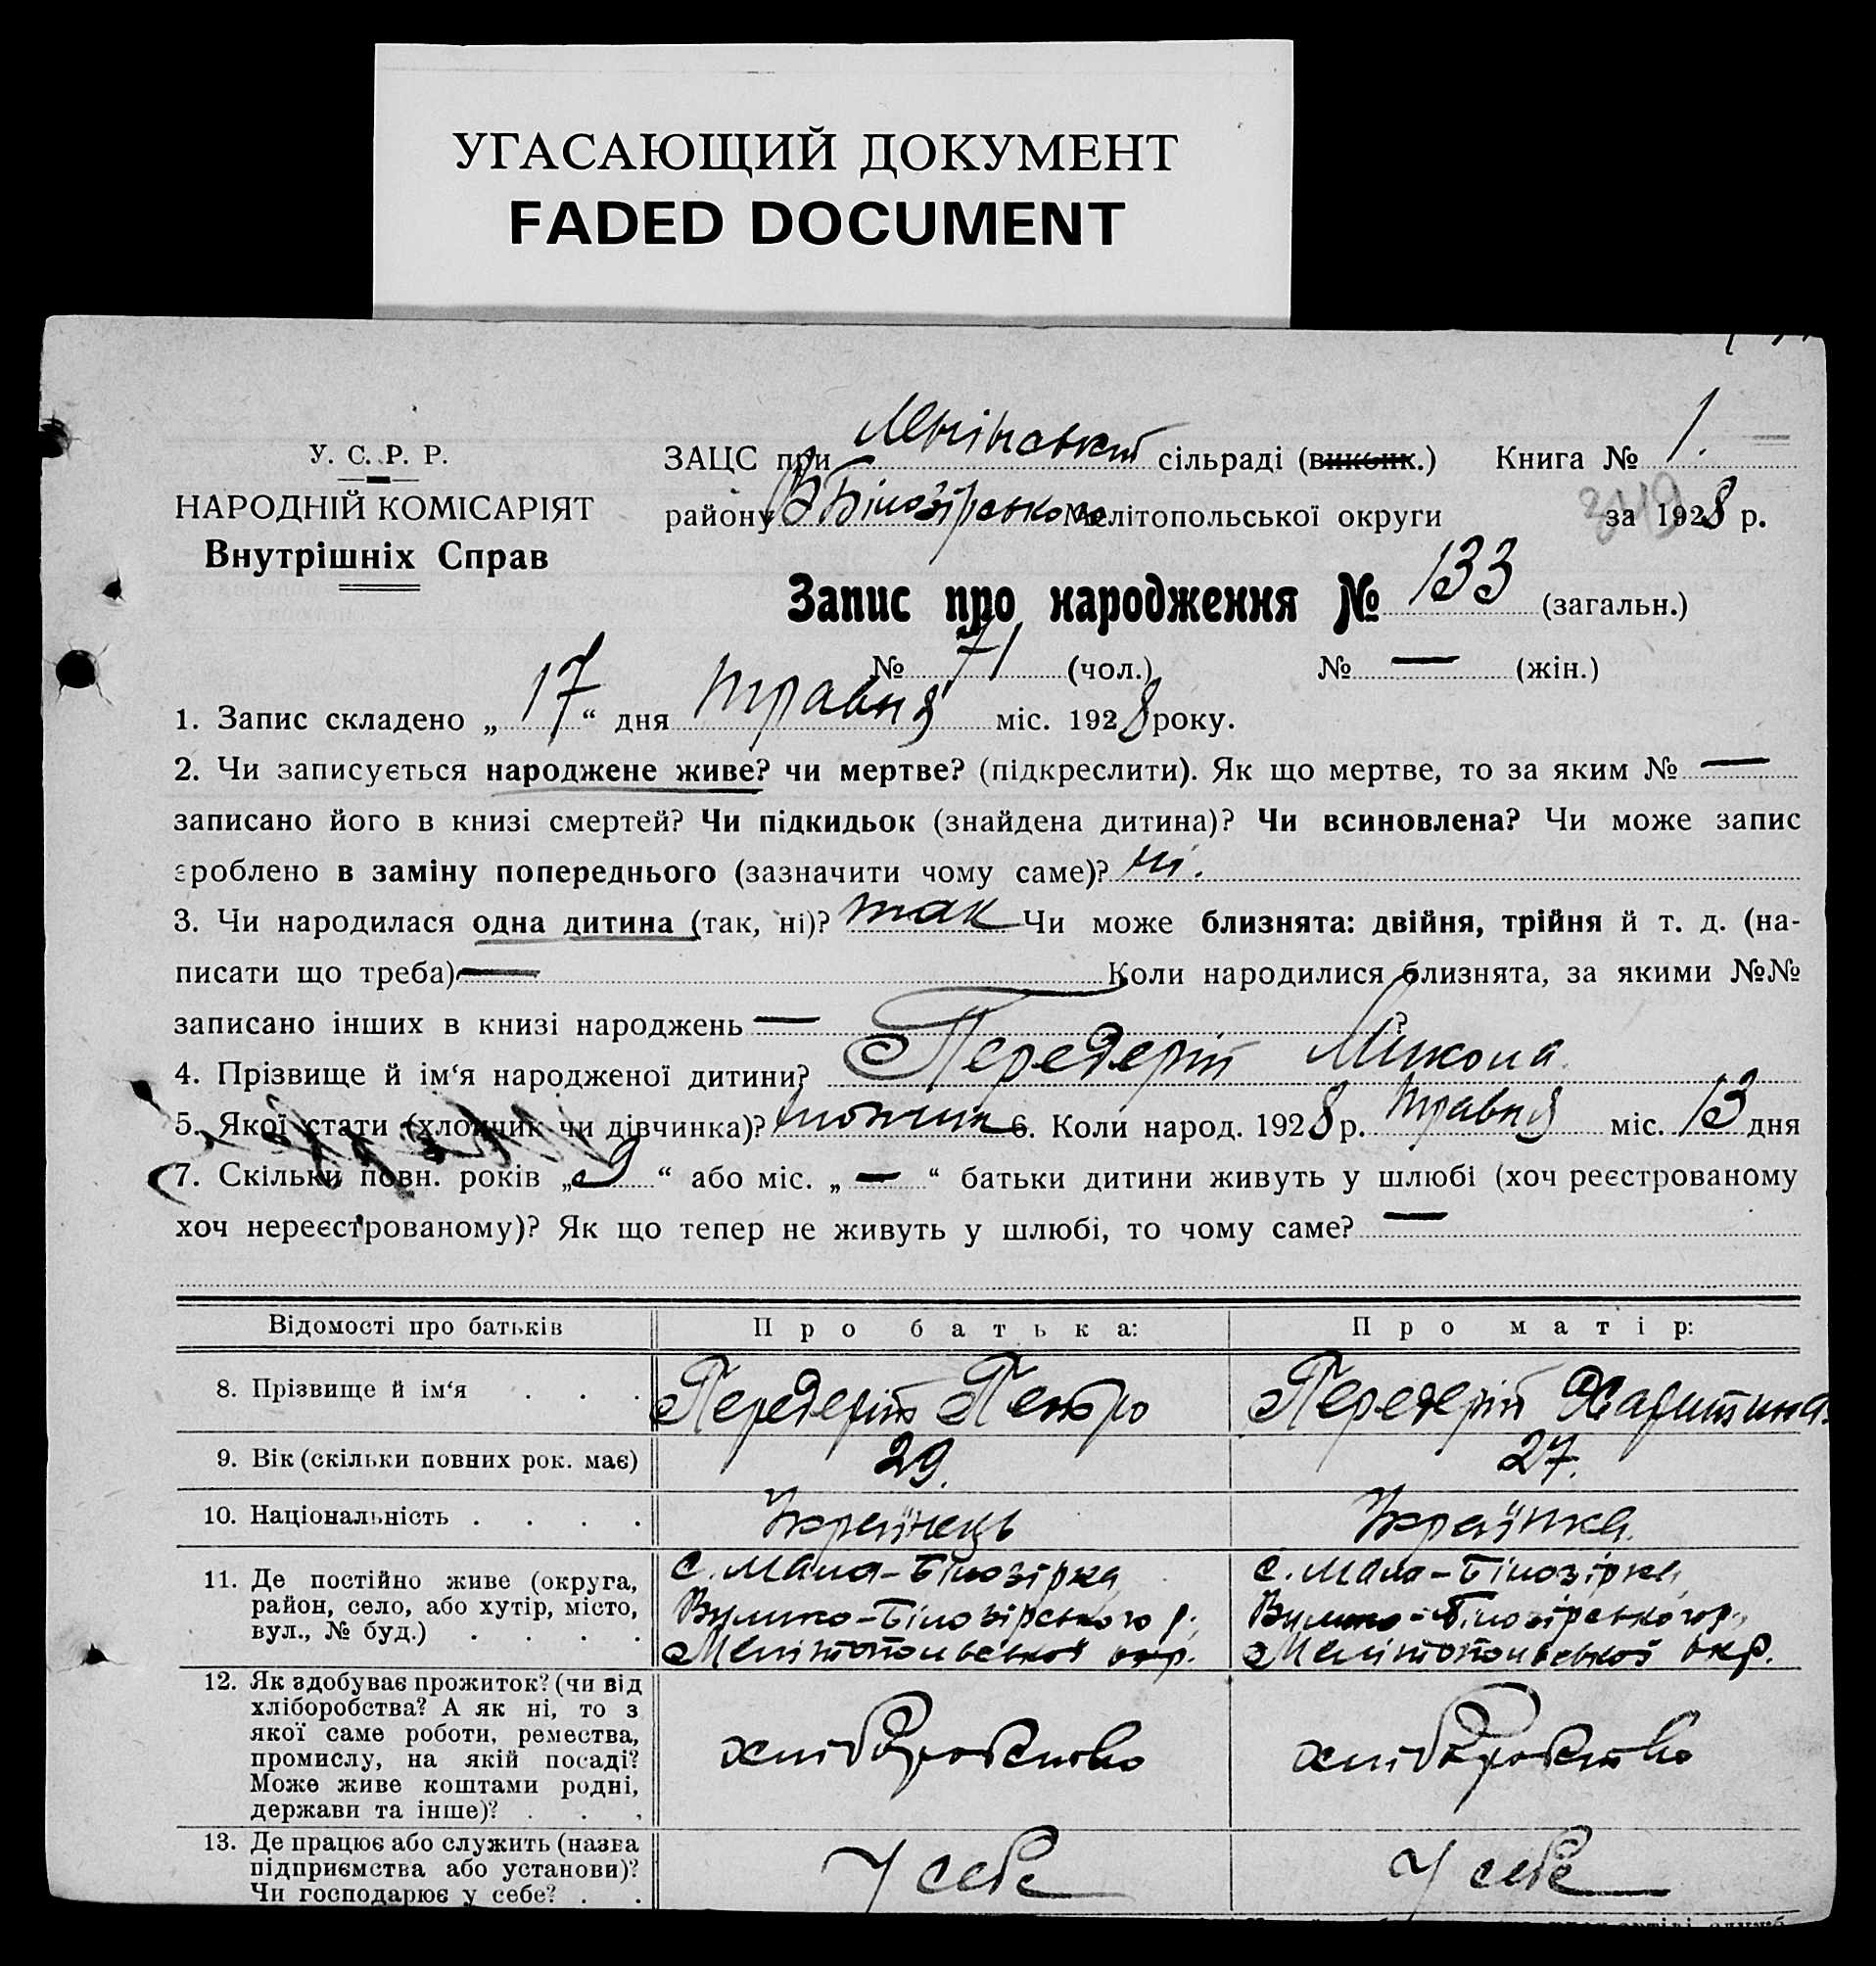 УГАСАЮЩИЙ ДОКУМЕНТ
FADED DOCUMENT
У. С. Р. Р.
НАРОДНІЙ КОМІСАРІЯТ
Внутрішніх Справ
ЗАЦС при Ленінській сільраді (виконк.) Книга № 1.
району В Білозірського Мелітопольської округи за 1928 р.
Запис про народження № 133 (загальн.)
№ 71 (чол.) № — (жін.)
1. Запис складено „17“ дня травня міс. 1928 року.
2. Чи записується народжене живе? чи мертве? (підкреслити). Як що мертве, то за яким № —
записано його в книзі смертей? Чи підкидьок (знайдена дитина)? Чи всиновлена? Чи може запис
зроблено в заміну попереднього (зазначити чому саме)? ні.
3. Чи народилася одна дитина (так, ні)? так Чи може близнята: двійня, трійня й т. д. (на-
писати що треба) — Коли народилися близнята, за якими №№
записано інших в книзі народжень — ?
4. Прізвище й ім‘я народженої дитини? Передерій Микола.
5. Якої стати (хлопчик чи дівчинка)? хлопчик 6. Коли народ. 1928 р. травня міс. 13 дня
7. Скільки повн. років „9“ або міс. „—“ батьки дитини живуть у шлюбі (хоч реєстрованому
хоч нереєстрованому)? Як що тепер не живуть у шлюбі, то чому саме? —
Відомості про батьків Про батька: Про матір:
8. Прізвище й ім‘я . . . Передерій Петро Передерій Харитина.
9. Вік (скільки повних рок. має) 29. 27.
10. Національність . . . . Українець Українка.
11. Де постійно живе (округа, с. Мала-Білозірка, с. Мала-Білозірка,
район, село, або хутір, місто, Велико-Білозірського р. Велико-Білозірського р.,
вул., № буд.) . . . . Мелітопольської окр. Мелітопольської окр.
12. Як здобуває прожиток? (чи від
хліборобства? А як ні, то з
якої саме роботи, ремества,
промислу, на якій посаді? хліборобство хліборобство
Може живе коштами родні,
держави та інше)? . . .
13. Де працює або служить (назва
підприємства або установи)? У себе У себе
Чи господарює у себе? . .